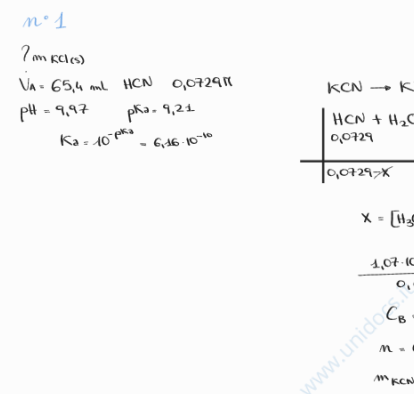 n°1
? m KCl(s)
VA = 65,4 mL HCN 0,0729 M
pH = 9,97 pKa = 9,21
Ka = 10^-pKa = 6,16 · 10^-10
KCN → K
HCN + H2O
0,0729
0,0729-X
X = [H3O
1,07·10
0,
CB =
n =
m KCN
www.unidocs.i